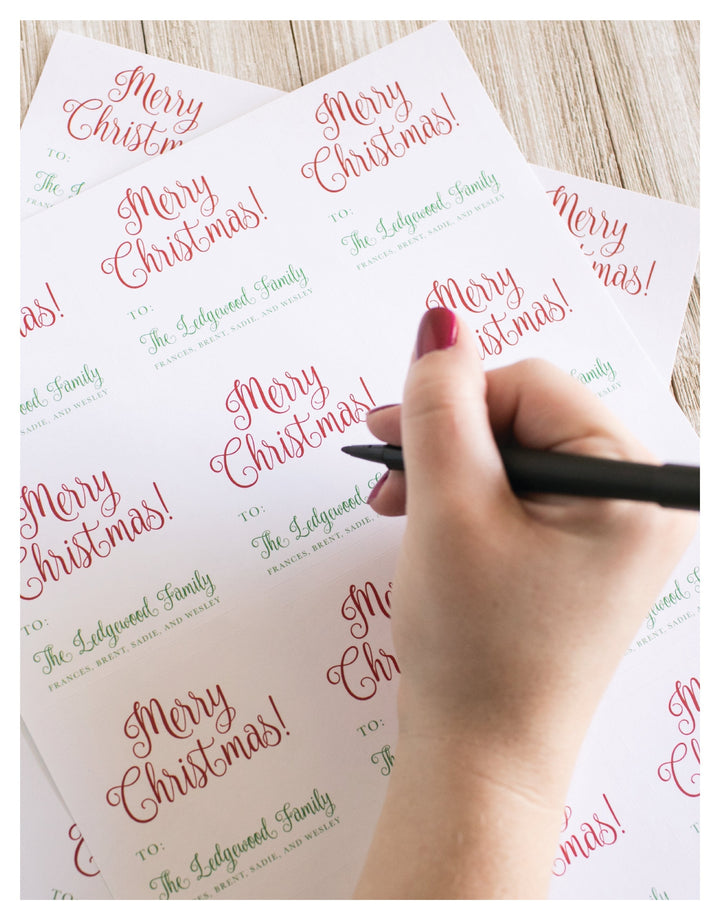 Merry
Christm
TO:
The L
Merry
Christmas!
TO:
The Ledgewood Family
FRANCES, BRENT, SADIE, AND WESLEY
Merry
Christmas!
TO:
The Ledgewood Family
FRANCES, BRENT, SADIE, AND WESLEY
Merry
mas!
as!
Family
SADIE, AND WESLEY
Merry
stmas!
Family
WESLEY
Merry
Christmas!
TO:
The Ledgewood
FRANCES, BRENT, SADIE,
Merry
Christmas!
TO:
The Ledgewood Family
FRANCES, BRENT, SADIE, AND WESLEY
Me
Chri
TO:
Merry
Christmas!
TO:
The Ledgewood Family
BRENT, SADIE, AND WESLEY
mas!
TO: